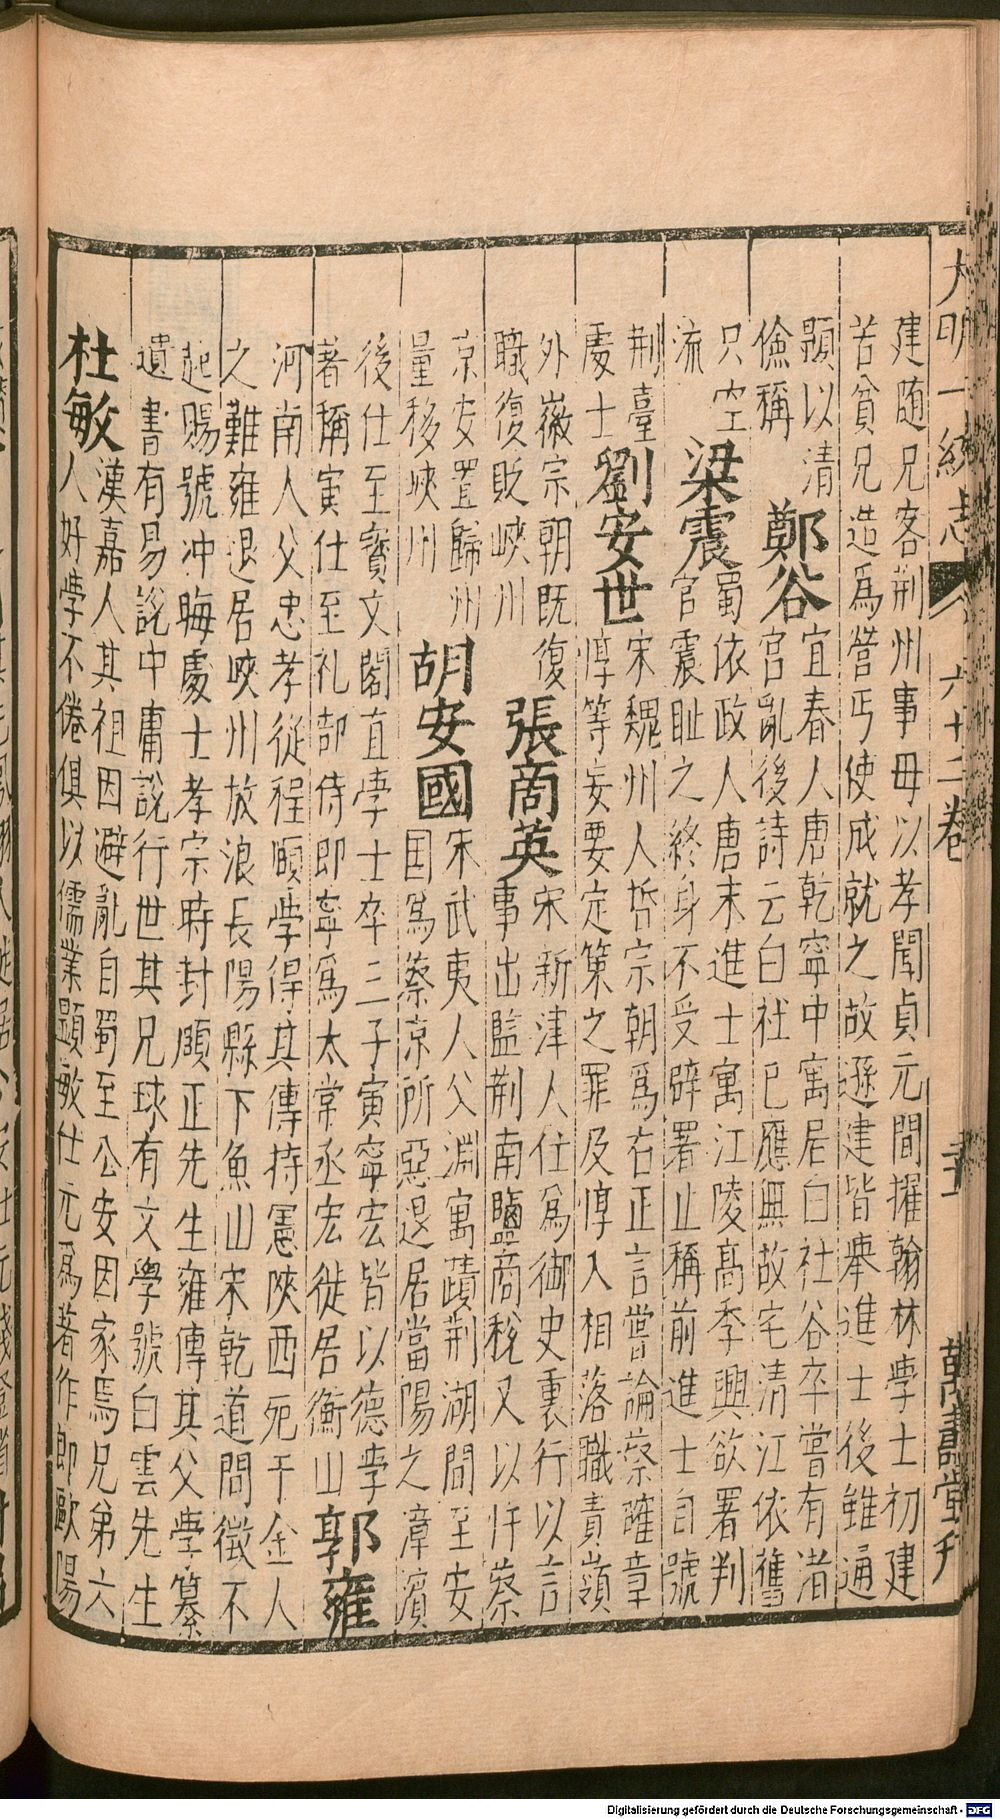 大明一統志 六十二卷 萬壽堂刊
建随兄客荆州事母以孝聞貞元間擢翰林學士初建
苦貧兄造爲營丐使成就之故遜建皆舉進士後雖通
顕以清
儉稱
鄭谷
宜春人唐乾寧中寓居白社谷卒嘗有渚
宫亂後詩云白社已應無故宅清江依舊
只空
流
梁震
蜀依政人唐末進士寓江陵髙季興欲署判
官震耻之終身不受辟署止稱前進士自號
荆臺
處士
劉安世
宋魏州人哲宗朝爲右正言嘗論蔡確章
惇等妄要定策之罪及惇入相落職責嶺
外徽宗朝既復
職復貶峽州
張商英
宋新津人仕爲御史裏行以言
事出監荆南鹽商稅又以忤蔡
京安置歸州
量移峽州
胡安國
宋武夷人父淵寓蹟荆湖間至安
国爲蔡京所惡退居當陽之漳濱
後仕至寶文閣直學士卒三子寅寧宏皆以德學
著稱寅仕至礼部侍郎寧爲太常丞宏徙居衡山
郭雍
河南人父忠孝從程頥學得其傳持憲陜西死于金人
之難雍退居峽州放浪長陽縣下魚山宋乾道間徵不
起賜號冲晦處士孝宗時封頥正先生雍傳其父學纂
遺書有易說中庸說行世其兄球有文學號白雲先生
杜敏
漢嘉人其祖因避亂自蜀至公安因家焉兄弟六
人好學不倦俱以儒業顕敏仕元爲著作郎歐陽
Digitalisierung gefördert durch die Deutsche Forschungsgemeinschaft - DFG